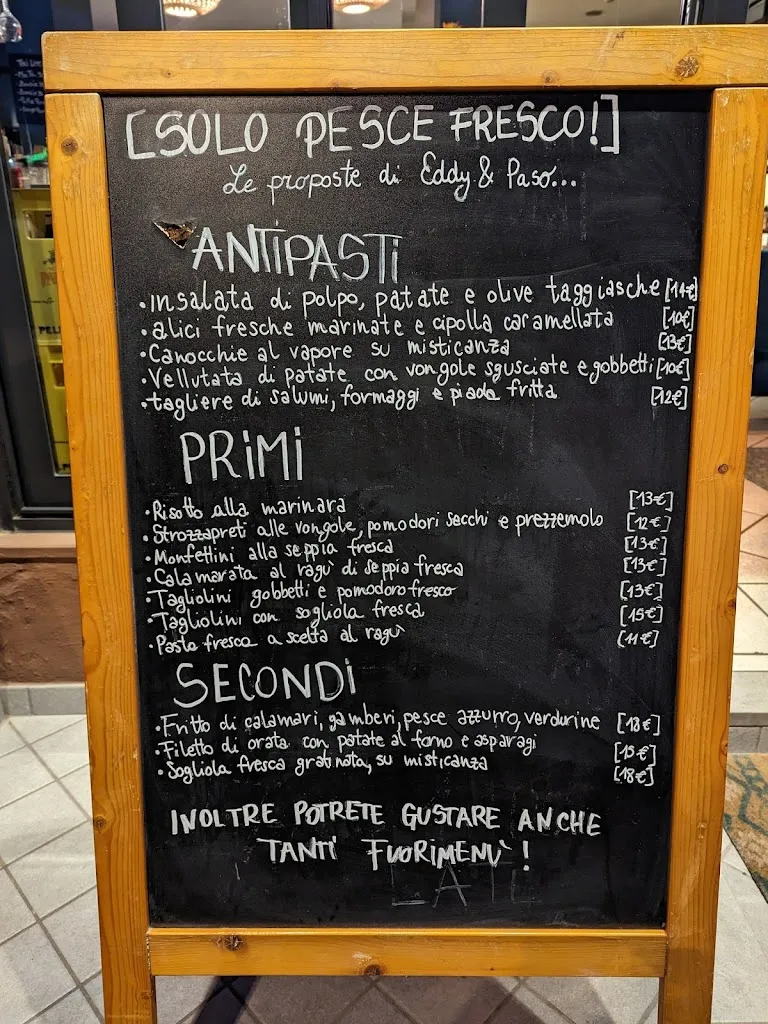 [SOLO PESCE FRESCO!]
Le proposte di Eddy & Paso...
ANTIPASTI
• insalata di polpo, patate e olive taggiasche [14€]
• alici fresche marinate e cipolla caramellata [10€]
• Canocchie al vapore su misticanza [13€]
• Vellutata di patate con vongole sgusciate e gobbetti [10€]
• tagliere di salumi, formaggi e piada fritta [12€]
PRIMI
• Risotto alla marinara [13€]
• Strozzapreti alle vongole, pomodori secchi e prezzemolo [12€]
• Monfettini alla seppia fresca [13€]
• Calamarata al ragù di seppia fresca [13€]
• Tagliolini gobbetti e pomodoro fresco [13€]
• Tagliolini con sogliola fresca [15€]
• Pasta fresca a scelta al ragù [11€]
SECONDI
• Fritto di calamari, gamberi, pesce azzurro, verdurine [18€]
• Filetto di orata con patate al forno e asparagi [15€]
• Sogliola fresca gratinata, su misticanza [18€]
INOLTRE POTRETE GUSTARE ANCHE
TANTI FUORIMENÙ!